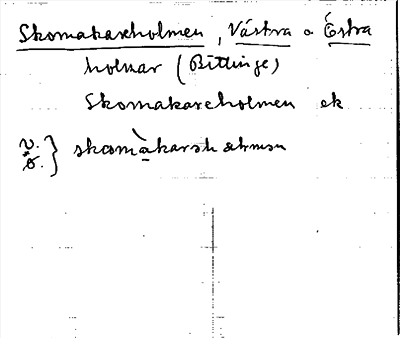 Skomakareholmen, Västra o Östra
holmar (Bittinge)
Skomakareholmen ek
v.
ö. } skomàkarsh